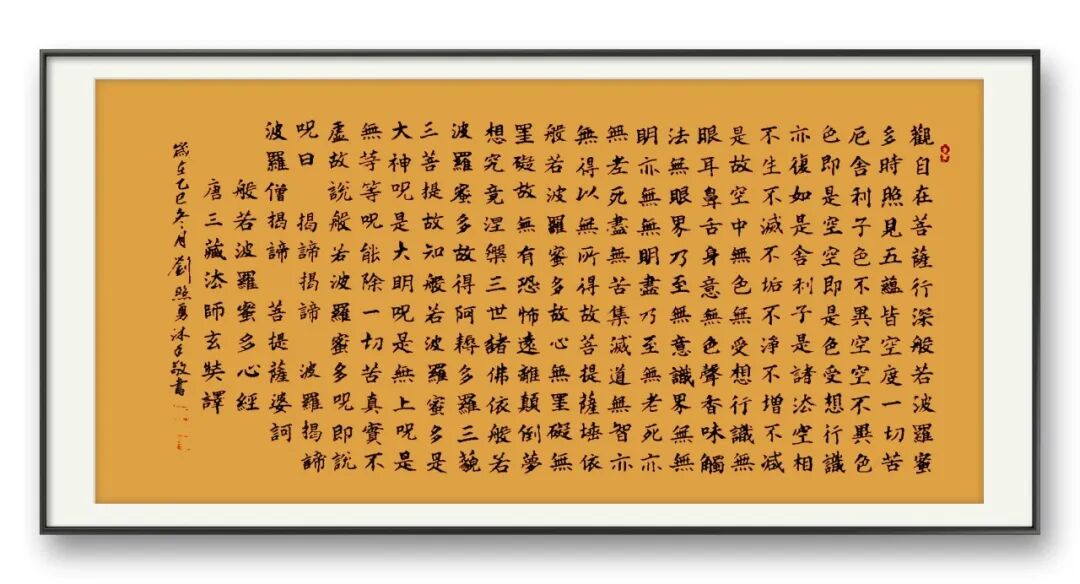 觀自在菩薩行深般若波羅蜜
多時照見五蘊皆空度一切苦
厄舍利子色不異空空不異色
色即是空空即是色受想行識
亦復如是舍利子是諸法空相
不生不滅不垢不淨不增不減
是故空中無色無受想行識無
眼耳鼻舌身意無色聲香味觸
法無眼界乃至無意識界無無
明亦無無明盡乃至無老死亦
無老死盡無苦集滅道無智亦
無得以無所得故菩提薩埵依
般若波羅蜜多故心無罣礙無
罣礙故無有恐怖遠離顛倒夢
想究竟涅槃三世諸佛依般若
波羅蜜多故得阿耨多羅三藐
三菩提故知般若波羅蜜多是
大神呪是大明呪是無上呪是
無等等呪能除一切苦真實不
虛故說般若波羅蜜多呪即說
呪曰 揭諦揭諦 波羅揭諦
波羅僧揭諦 菩提薩婆訶
般若波羅蜜多心經
唐三藏法師玄奘譯
歲在乙巳冬月劉照勇沐手敬書